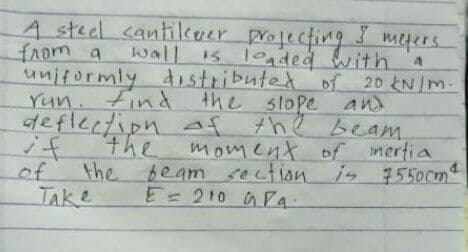 A steel cantilever projecting 8 meters
from a wall is loaded with a
uniformly distributed of 20 kN/m.
run. find the slope and
deflection of the beam
if the moment of inertia
of the beam section is 7550cm⁴
Take E = 210 GPa.